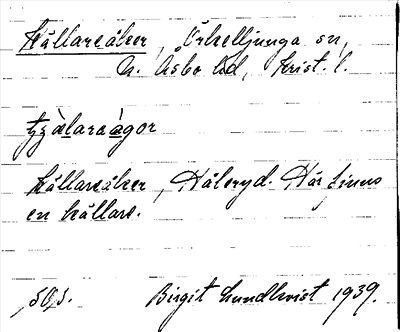 Källareåker, Örkelljunga sn,
N. Åsbo hd, Krist. l.
tɟǽlaraàgor
Källareåker, Håleryd. Här finns
en källare.
501. Birgit Lundkvist 1939.